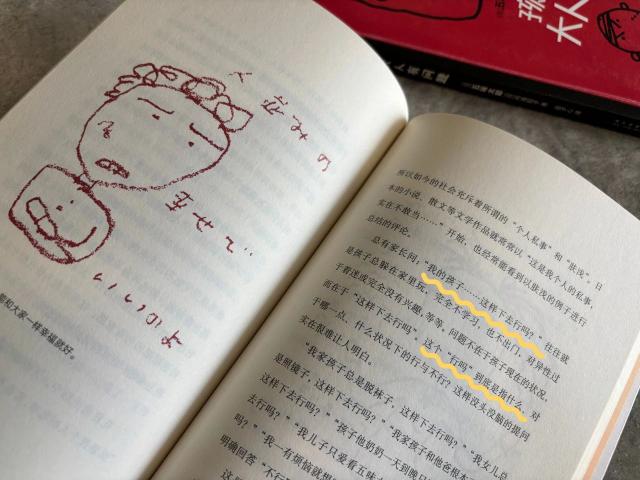 孩
大人
人有问题
人並みの
幸せで
いいのよ
和大家一样幸福就好。
所以如今的社会充斥着所谓的“个人私事”和“肤浅”。日
本的小说、散文等文学作品就常常以“这是我个人的私事
实在不敢当……”开始，也经常能看到以肤浅的男子进行
总结的评论。
总有家长问：“我的孩子……这样下去行吗？”往往就
是孩子总躲在家里玩，完全不学习，也不出门，对异性过
于着迷或完全没有兴趣，等等。问题不在于孩子现在的状况，
而在于“这样下去行吗”，这个“行吗”到底是指什么，对
于哪一点、什么状况下的行与不行？这样没头没脑的提问
实在很难让人明白。
“我家孩子总是脱袜子，这样下去行吗？”“我女儿总
是照镜子，这样下去行吗？”“我家孩子和他爸根本
这样下去行吗？”“孩子他奶奶一天到晚只
去行吗？”“我儿子只爱看五味
吗？”“我一有烦恼就想
明确回答“不行